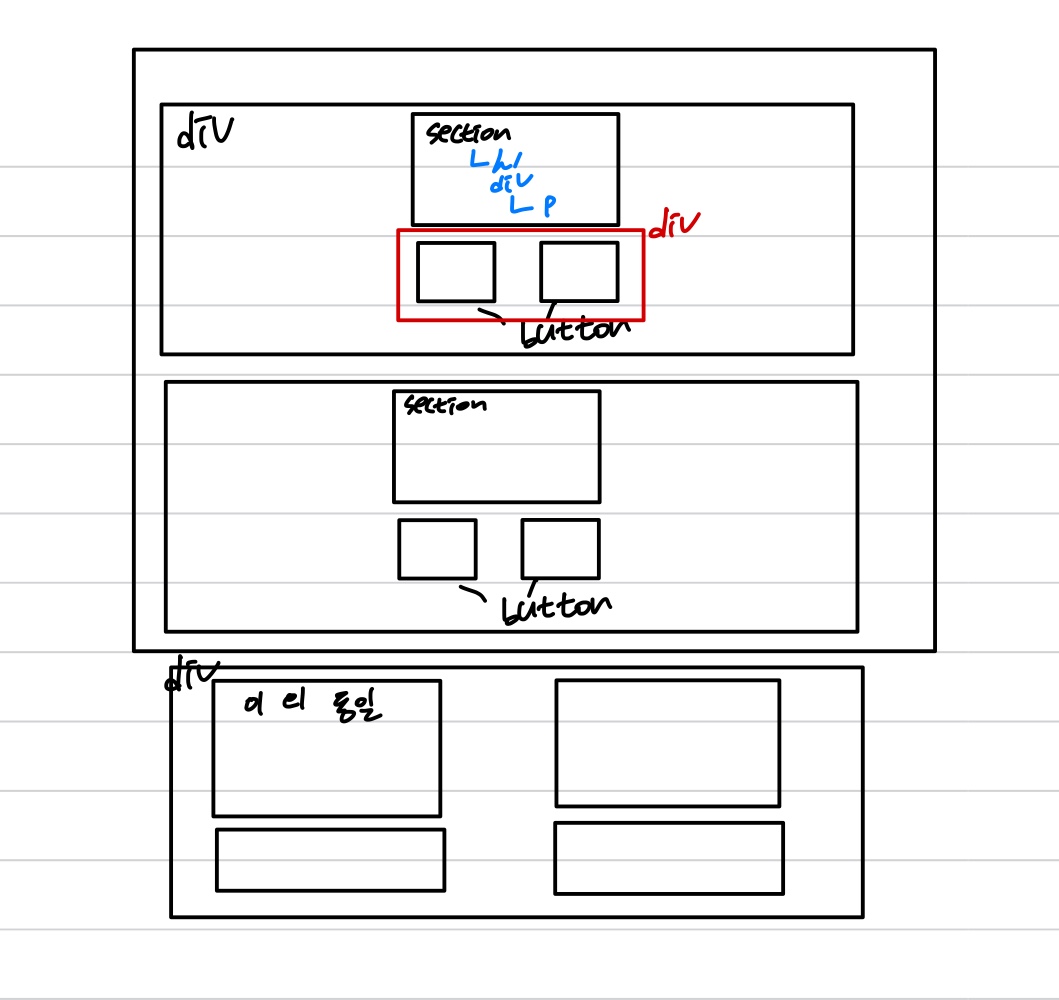 div
section
└ h1
div
└ p
div
button
section
button
div
이 하 동일